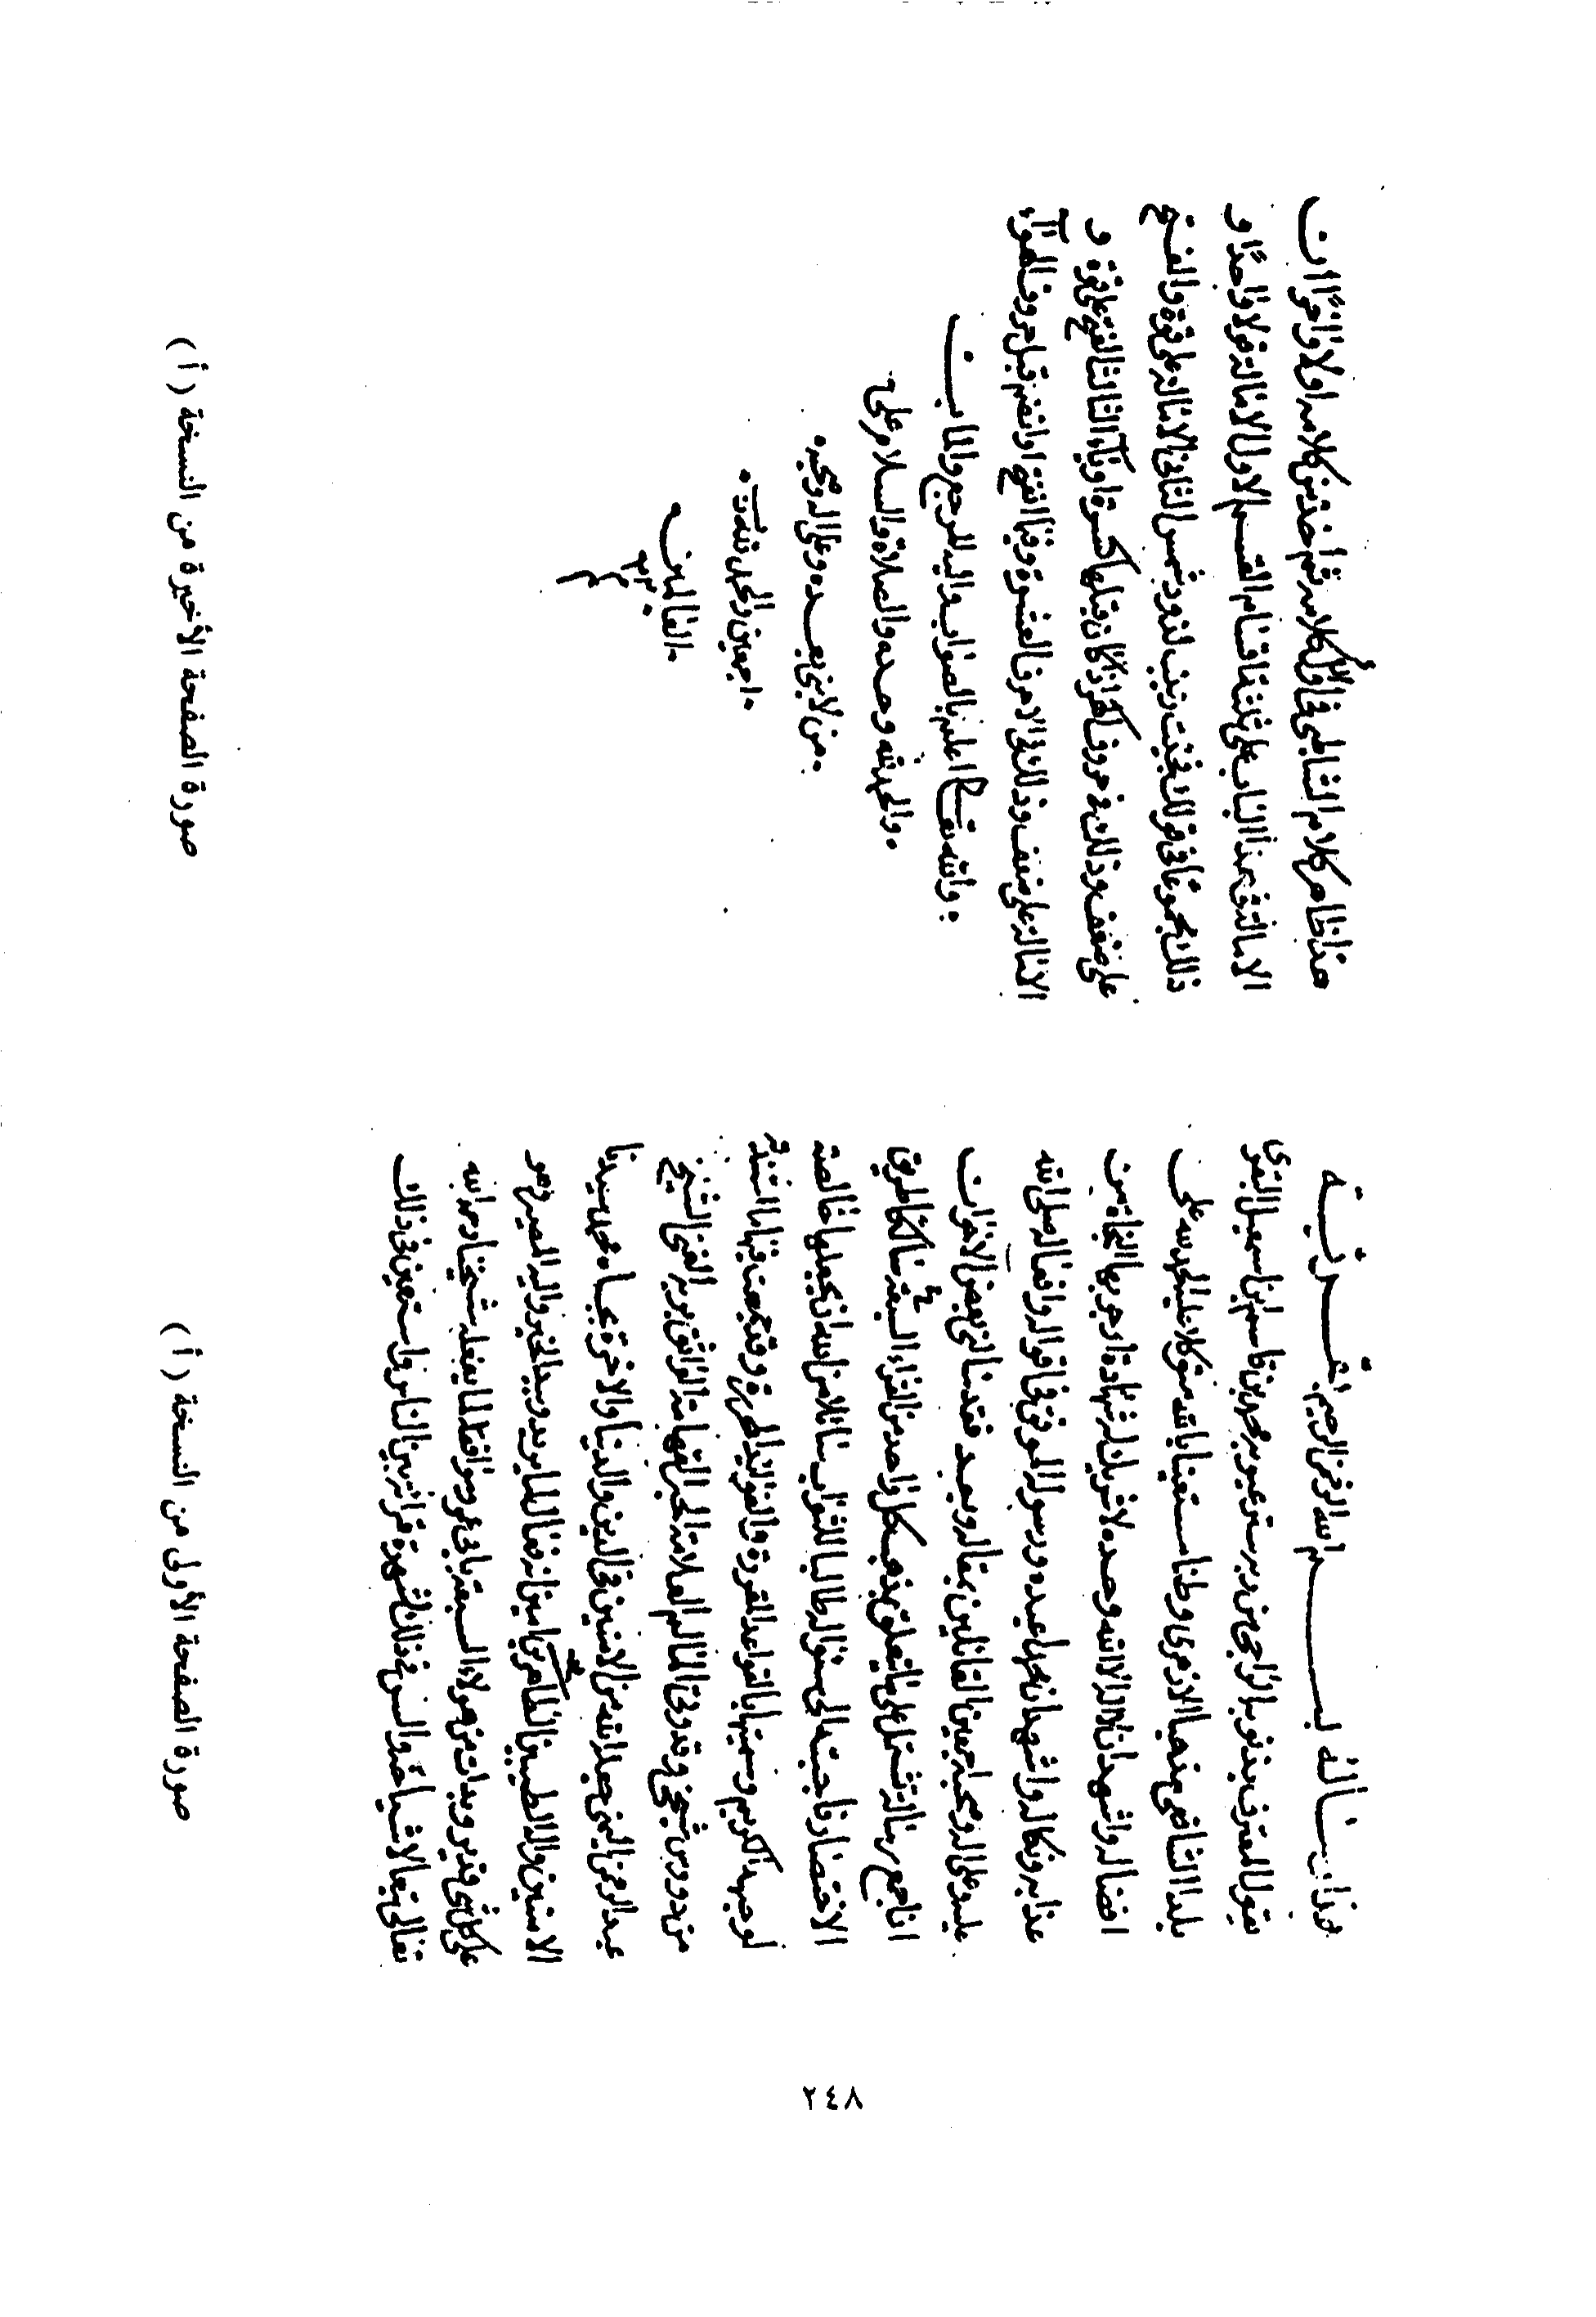 هذا رسالة بسم الله الرحمن الرحيم شريفة
يقول المعترف بذنوبه الراجي من ربه ستر عيوبه محمد بن قاسم بن اسمعيل البقري
بلدا الشافعي مذهبا الازهري وطنا مستعينا بالله متوكلا عليه الحمد لله على
افضاله واشهد ان لا اله الا الله وحده لا شريك له شهادة ارجو بها النجاة من
عذابه ونكاله واشهد ان محمدا عبده ورسوله الموفق في اقواله وافعاله صلى الله
عليه وعلى اله وصحبه اجمعين القائلين بمقاله وبعد فقد سالني بعض الاخوان
ان اجمع رسالة تشتمل على ما يتعلق بمذهب كل واحد من القراء السبعة سالكا طريق
الاختصار فاجبته الى سؤاله طالبا للثواب سائلا من الله ان يجعلها خالصة
لوجهه الكريم وسميتها بالقواعد المقررة والفوائد المحررة وقد تبعت فيها ما استفدته
من دروس شيخي وقدوتي العالم العلامة الحبر الفهامة الواثق بربه الغني الشيخ
عبد الرحمن اليمني جعله الله من الامنين في الدين والدنيا والاخرة بجاه محمد سيدنا
الامين واله الطيبين الطاهرين امين انه فعال لما يريد وبيده الخير واليه المصير وهو
على كل شي قدير وبدات من هؤلاء السبعة بابي عمرو موافقا لما يفعله شيخنا رحمه الله
تعالى تبعا لاشياخه والسر في ذلك شهرة قراءته بين الناس واستعين في ذلك
صورة الصفحة الأولى من النسخة (أ)
هذا ظاهر كلام الشاطبي في اول كلامه ثم اخذ من كلامه اولا واخرا ان
الامالة في هذا الباب على ثلثة اقسام القسم الاول الامالة قولا واحدا و
ذلك مجموعا في قولك فجثت زينب لذود شمس الثاني الامالة على قوة والفتح
على ضعف وذلك في حروف اكهر اذا كان قبلها كسرة او ياء الثالث الفتح على قوة و
الامالة على ضعف وذلك في الاحرف العشرة وفيما انفتح او انضم قبل حروف اكهر
والله تعالى اعلم بالصواب واليه المرجع والمآب
والحمد لله وحده والصلاة والسلام على
من لا نبي بعده وعلى اله وصحبه
اجمعين والحمد لله رب
العالمين
م م م
م
صورة الصفحة الأخيرة من النسخة (أ)
٢٤٨